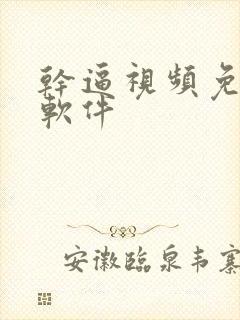 幹逼視頻免
軟件
安徽臨泉韦寨